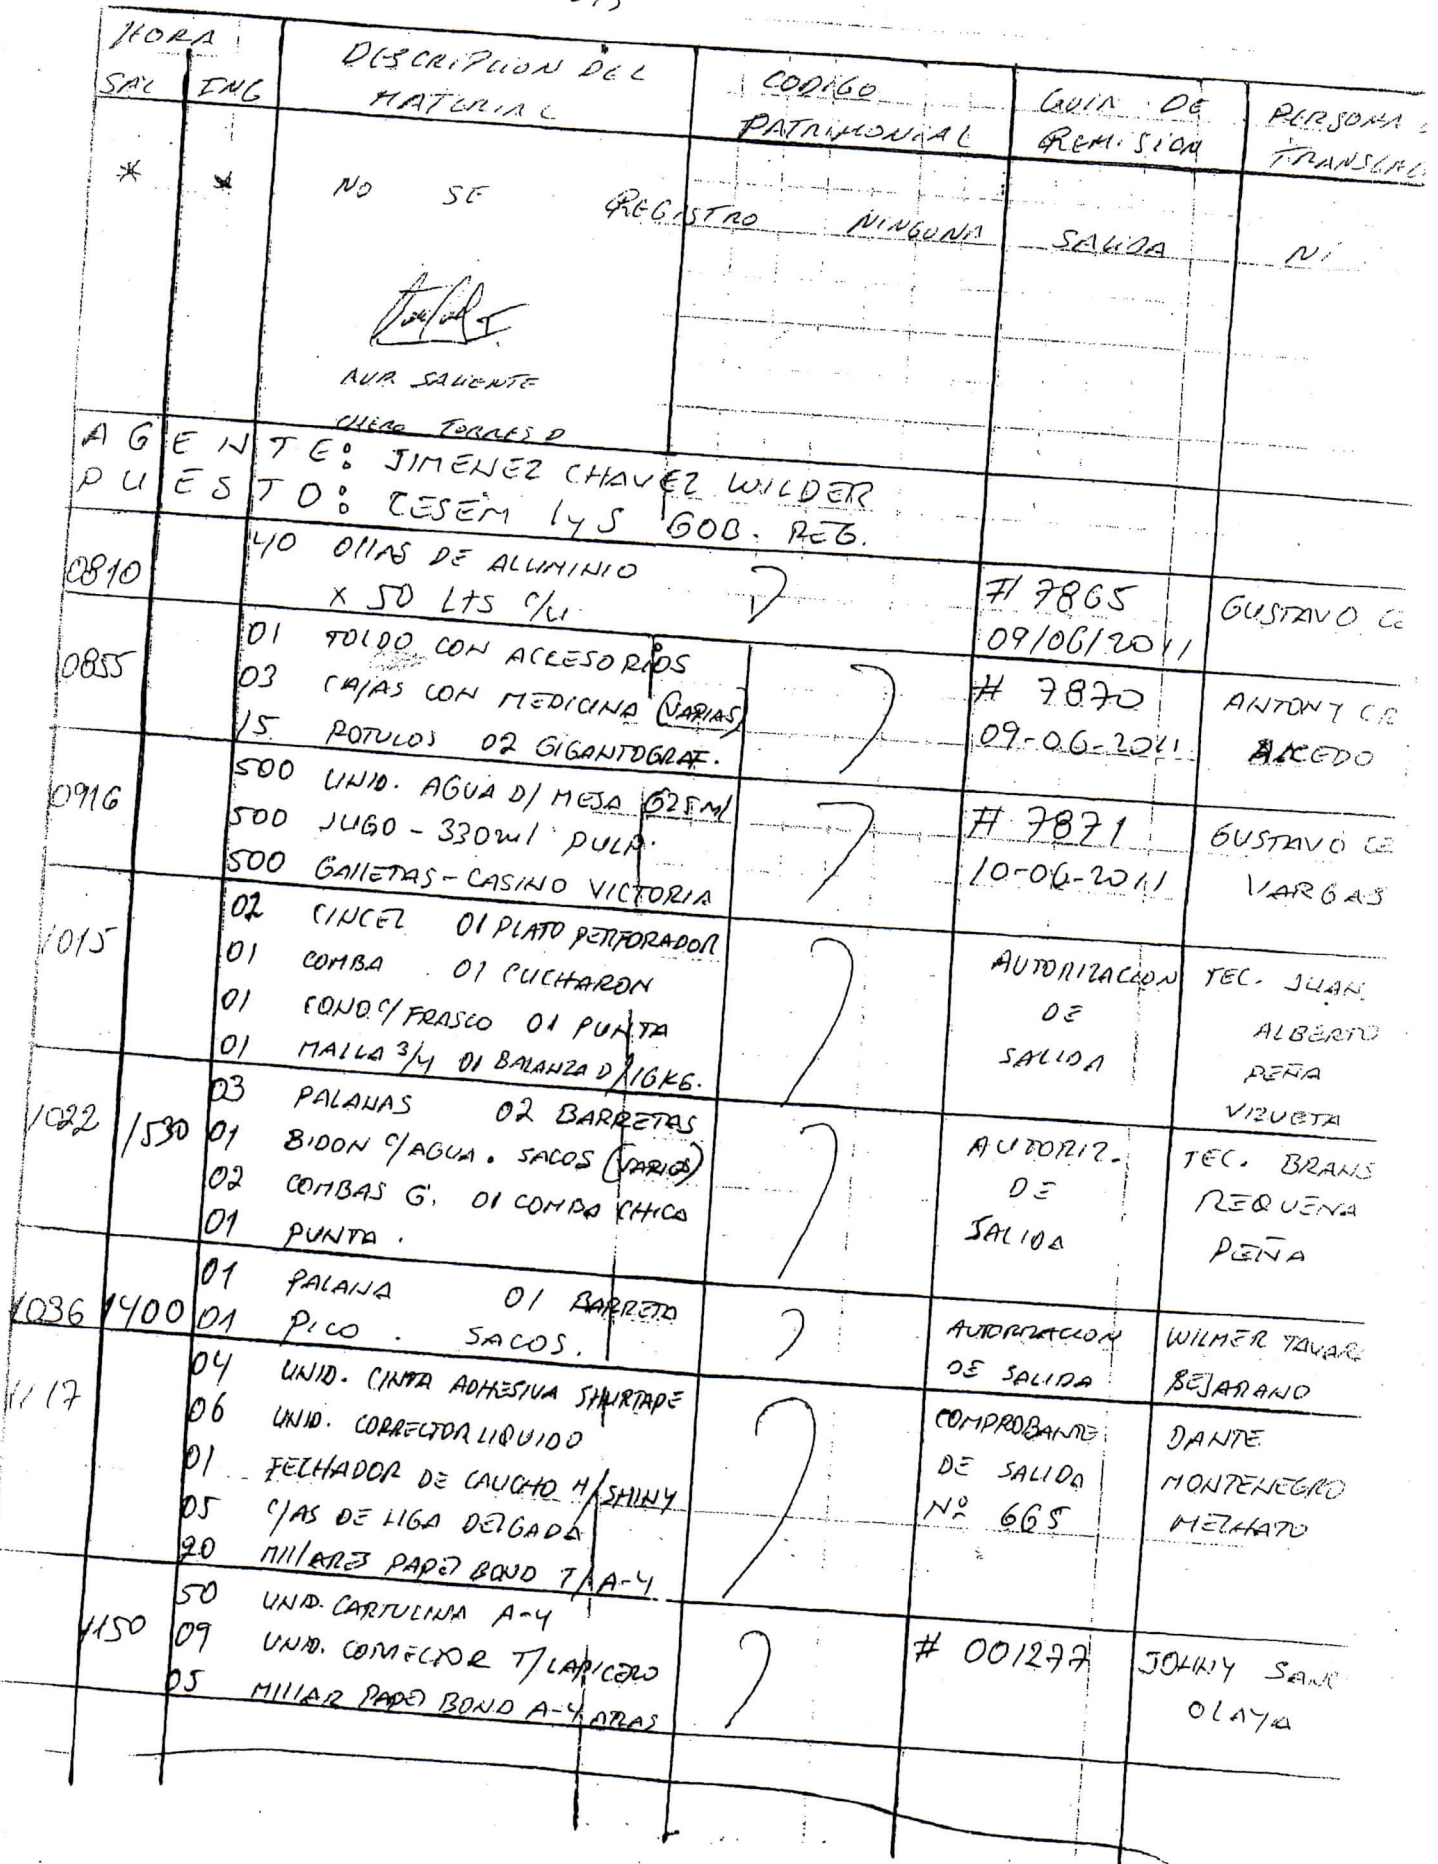 HORA
SAL ING
DESCRIPCION DEL
MATERIAL
CODIGO
PATRIMONIAL
GUIA DE
REMISION
PERSONA
* * NO SE REGISTRO NINGUNA SALIDA NI
AVP. SALIENTE
CHERO TORRES D
AGENTE: JIMENEZ CHAVEZ WILDER
PUESTO: CESEM 1y5 GOB. REG.
0810
40 OllAS DE ALUMINIO
X 50 LTS C/U.
# 7865
09/06/2011
GUSTAVO CE
0855
01 TOLDO CON ACCESORIOS
03 CAJAS CON MEDICINA (VARIAS)
15 ROTULOS 02 GIGANTOGRAF.
# 7870
09-06-2011
ANTONY CR
ALCEDO
0916
500 UNID. AGUA D/ MESA 625 Ml
500 JUGO - 330ml PULP.
500 GAllETAS - CASINO VICTORIA
# 7871
10-06-2011
GUSTAVO CE
VARGAS
1015
02 CINCEL 01 PLATO PERFORADOR
01 COMBA 01 CUCHARON
01 CONO C/FRASCO 01 PUNTA
01 MALLA 3/4 01 BALANZA D/16KG.
AUTORIZACION
DE
SALIDA
TEC. JUAN
ALBERTO
PEÑA
VIZUETA
1022 1530
03 PALANAS 02 BARRETAS
01 BIDON C/AGUA. SACOS (VARIOS)
02 COMBAS G. 01 COMBA CHICA
01 PUNTA.
AUTORIZ.
DE
SALIDA
TEC. BRANS
REQUENA
PEÑA
1036 1400
01 PALANA 01 BARRETA
01 PICO. SACOS.
AUTORIZACION
DE SALIDA
WILMER TAVAR
BEJARANO
1117
04 UNID. CINTA ADHESIVA SHURTAPE
06 UNID. CORRECTOR LIQUIDO
01 FECHADOR DE CAUCHO M/SHINY
05 C/AS DE LIGA DELGADA
20 MIllARES PAPEl BOND T/A-4
COMPROBANTE
DE SALIDA
Nº 665
DANTE
MONTENEGRO
MECHATO
1150
50 UNID. CARTULINA A-4
09 UNID. CORRECTOR T/LAPICERO
05 MIllAR PAPEl BOND A-4 ATLAS
# 001277
JOHNY SAN
OLAYA